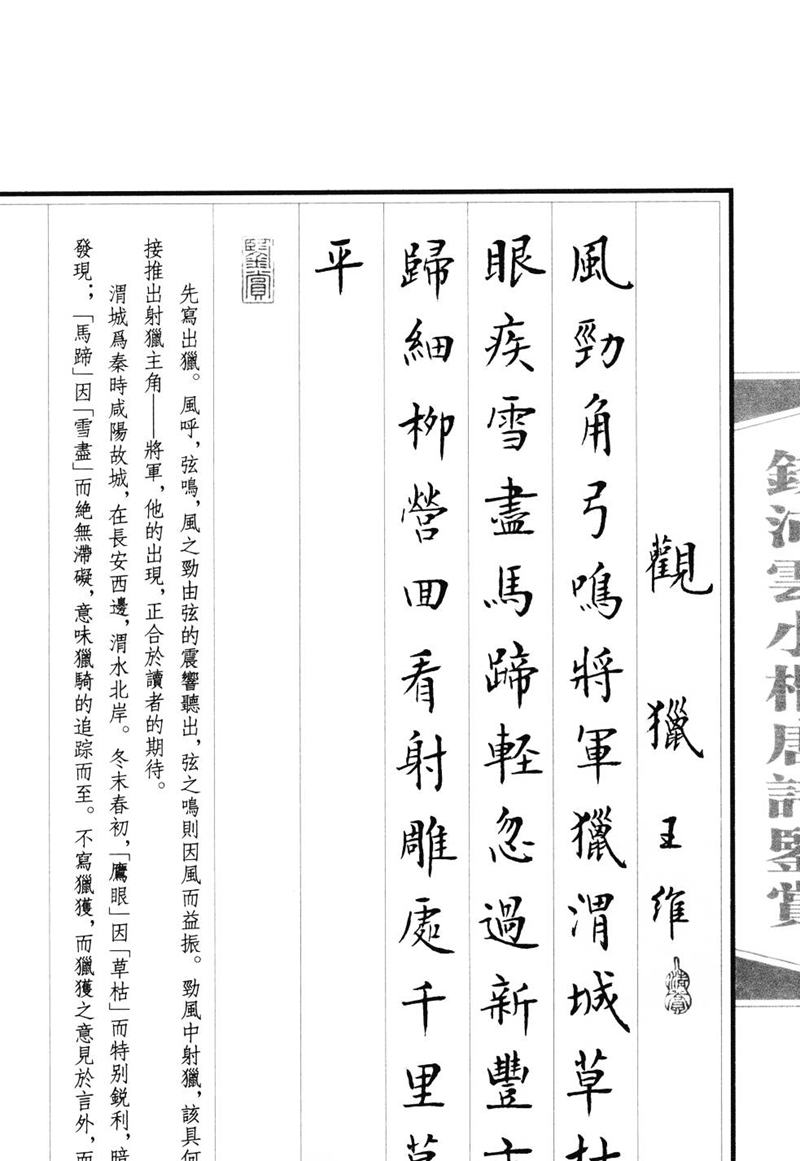 錢沛雲小楷唐詩鑒賞
觀獵 王維 清賞
風勁角弓鳴將軍獵渭城草枯
眼疾雪盡馬蹄輕忽過新豐
歸細柳營回看射雕處千里
平
鑒賞
先寫出獵。風呼，弦鳴，風之勁由弦的震響聽出，弦之鳴則因風而益振。勁風中射獵，該具何
接推出射獵主角——將軍，他的出現，正合於讀者的期待。
渭城爲秦時咸陽故城，在長安西邊，渭水北岸。冬末春初，「鷹眼」因「草枯」而特别鋭利，暗
發現；「馬蹄」因「雪盡」而絶無滯礙，意味獵騎的追踪而至。不寫獵獲，而獵獲之意見於言外，而